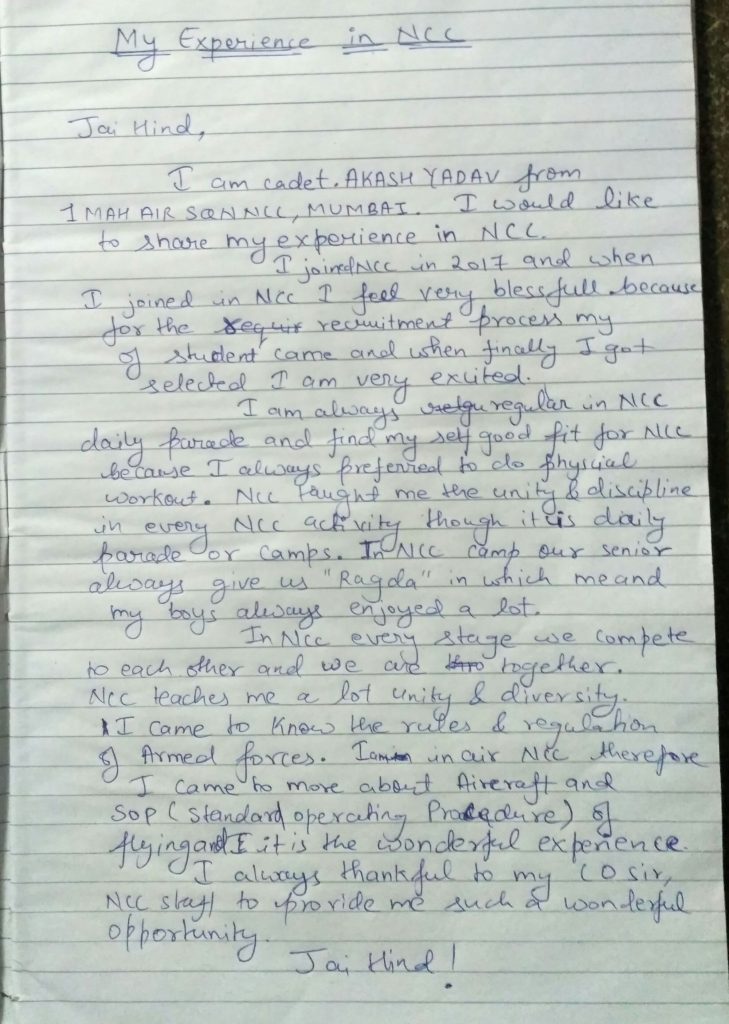 My Experience in NCC
Jai Hind,
I am cadet. AKASH YADAV from
1 MAH AIR SQN NCC, MUMBAI. I would like
to share my experience in NCC.
I joined NCC in 2017 and when
I joined in NCC I feel very blessfull because
for the recruitment process my
of student came and when finally I got
selected I am very excited.
I am always regular in NCC
daily parade and find my self good fit for NCC
because I always preferred to do physcial
workout. NCC taught me the unity & discipline
in every NCC activity though it is daily
parade or camps. In NCC camp our senior
always give us "Ragda" in which me and
my boys always enjoyed a lot.
In NCC every stage we compete
to each other and we are together.
NCC teaches me a lot unity & diversity.
I came to know the rules & regulation
of Armed forces. I am in air NCC therefore
I came to more about Aircraft and
SOP (Standard operating Procedure) of
flying and it is the wonderful experience.
I always thankful to my CO sir,
NCC staff to provide me such a wonderful
opportunity.
Jai Hind!